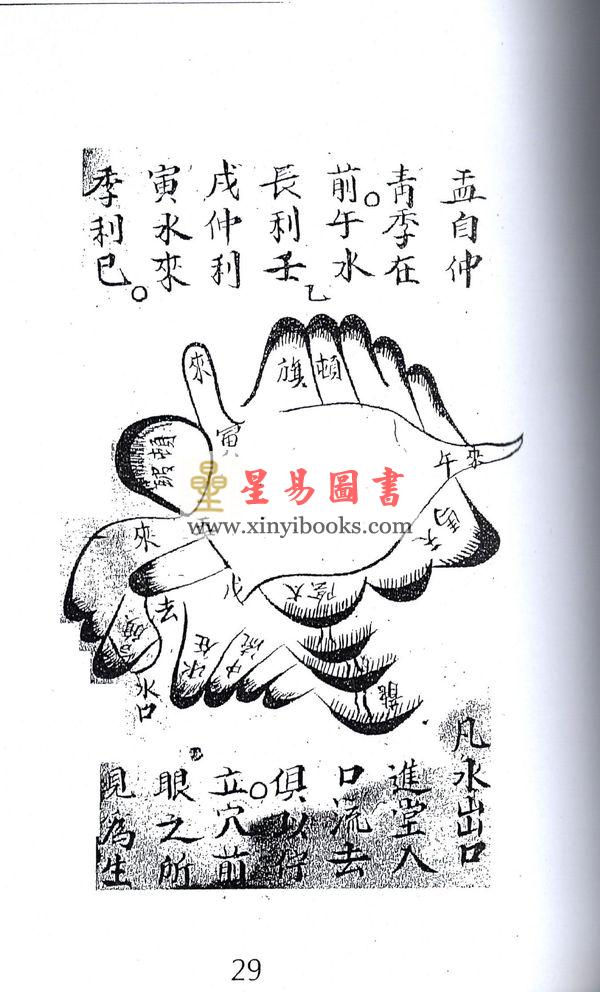 孟自仲
青季在
前午水
長利壬
戌仲利
寅水來
季利巳
來
旗
頓
寅
來
午
來
去
戌
太陰
水口
星易圖書
www.xinyibooks.com
凡水出口
進堂入
口流去
俱以仔
立穴前
眼之所
見為生
29